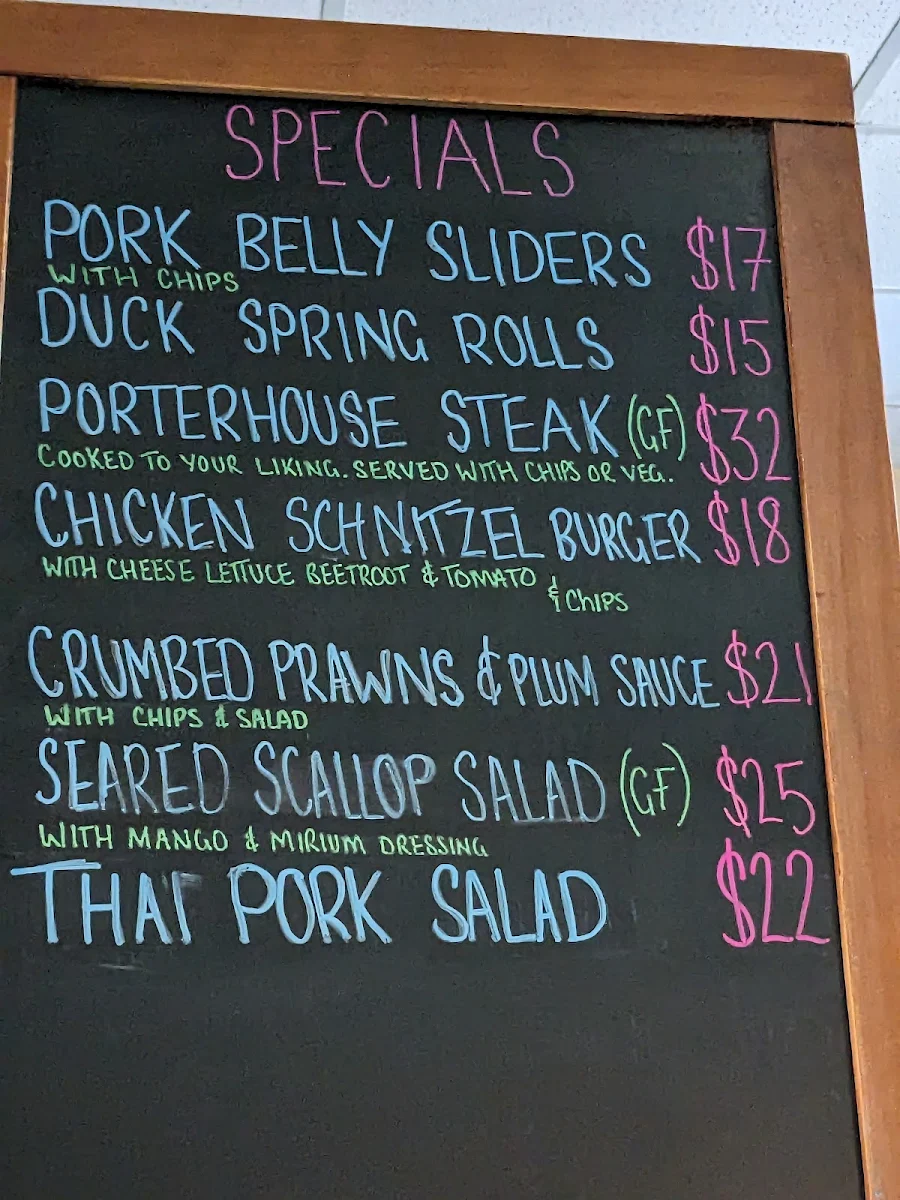 SPECIALS
PORK BELLY SLIDERS $17
WITH CHIPS
DUCK SPRING ROLLS $15
PORTERHOUSE STEAK (GF) $32
COOKED TO YOUR LIKING. SERVED WITH CHIPS OR VEG.
CHICKEN SCHNITZEL BURGER $18
WITH CHEESE LETTUCE BEETROOT & TOMATO
& CHIPS
CRUMBED PRAWNS & PLUM SAUCE $21
WITH CHIPS & SALAD
SEARED SCALLOP SALAD (GF) $25
WITH MANGO & MIRIUM DRESSING
THAI PORK SALAD $22